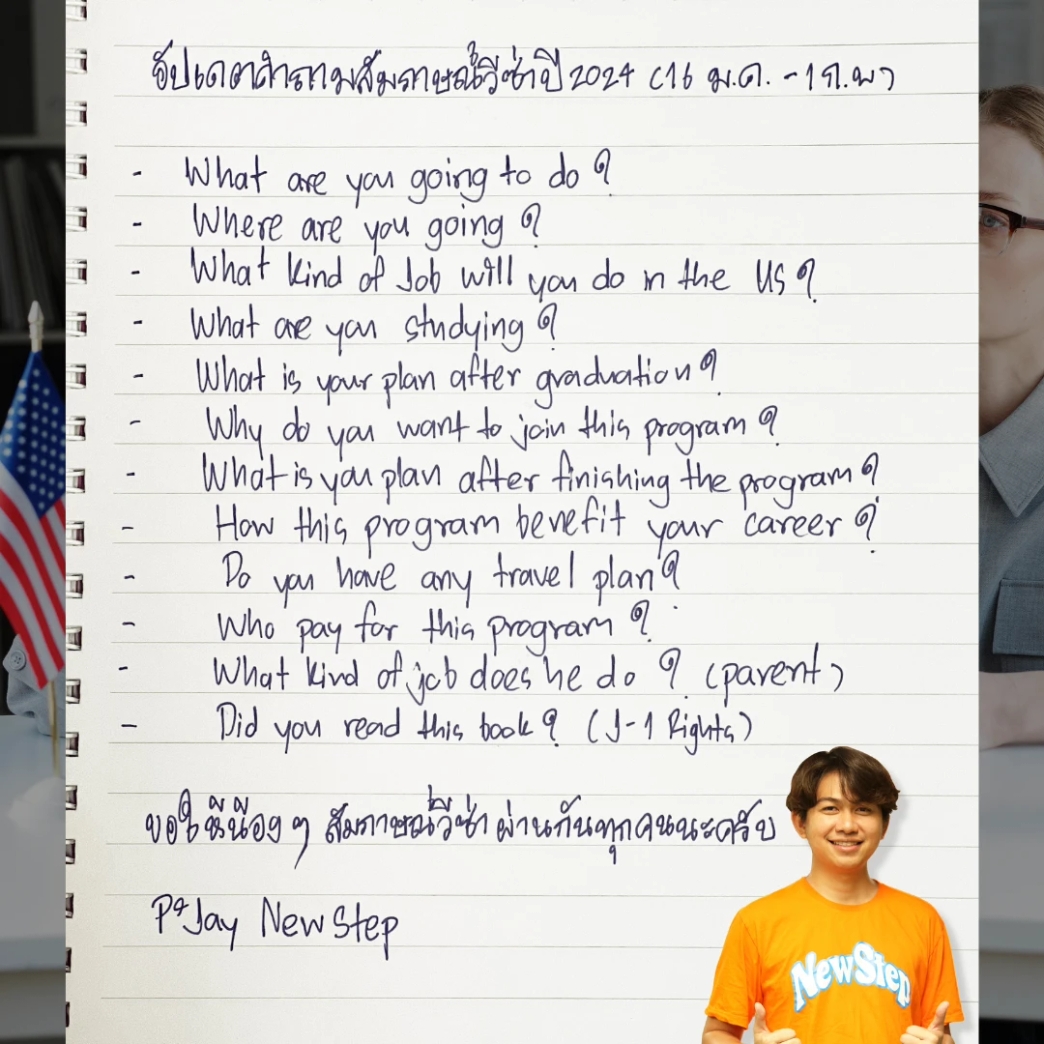 อัปเดตคำถามสัมภาษณ์วีซ่าปี 2024 (16 ม.ค. - 1 ก.พ)
- What are you going to do ?
- Where are you going ?
- What kind of Job will you do in the US ?
- What are you studying ?
- What is your plan after graduation ?
- Why do you want to join this program ?
- What is you plan after finishing the program ?
- How this program benefit your career ?
- Do you have any travel plan ?
- Who pay for this program ?
- What kind of job does he do ? (parent)
- Did you read this book ? (J-1 Rights)
ขอให้น้อง ๆ สัมภาษณ์วีซ่า ผ่านกันทุกคนนะครับ
P'Jay NewStep
NewStep